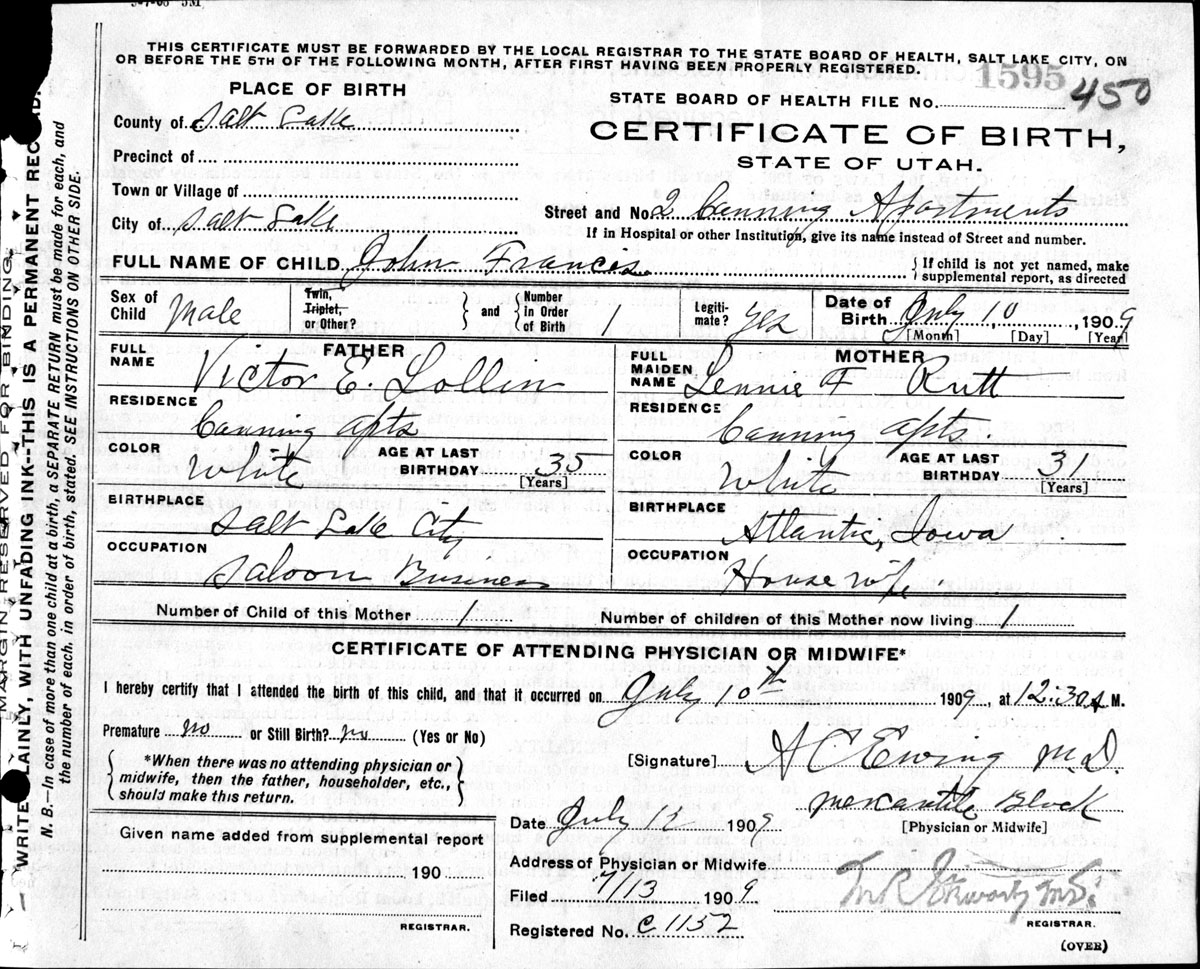 THIS CERTIFICATE MUST BE FORWARDED BY THE LOCAL REGISTRAR TO THE STATE BOARD OF HEALTH, SALT LAKE CITY, ON
OR BEFORE THE 5TH OF THE FOLLOWING MONTH, AFTER FIRST HAVING BEEN PROPERLY REGISTERED.
1595 450
PLACE OF BIRTH
STATE BOARD OF HEALTH FILE No.
County of Salt Lake
CERTIFICATE OF BIRTH,
Precinct of
STATE OF UTAH.
Town or Village of
City of Salt Lake
Street and No. 2 Canning Apartments
If in Hospital or other Institution, give its name instead of Street and number.
FULL NAME OF CHILD John Francis
{ If child is not yet named, make
supplemental report, as directed
Sex of Child Male
Twin, Triplet, or Other? } and { Number in Order of Birth 1
Legiti-mate? Yes
Date of Birth July 10, 1909
[Month] [Day] [Year]
FATHER
FULL NAME Victor E. Lollin
RESIDENCE
Canning Apts
COLOR White
AGE AT LAST BIRTHDAY 35
[Years]
BIRTHPLACE
Salt Lake City
OCCUPATION
Saloon Business
MOTHER
FULL MAIDEN NAME Lennie F Rutt
RESIDENCE
Canning Apts.
COLOR White
AGE AT LAST BIRTHDAY 31
[Years]
BIRTHPLACE
Atlantic, Iowa
OCCUPATION
Housewife
Number of Child of this Mother 1
Number of children of this Mother now living 1
CERTIFICATE OF ATTENDING PHYSICIAN OR MIDWIFE*
I hereby certify that I attended the birth of this child, and that it occurred on July 10th 1909, at 12:30 A M.
Premature No or Still Birth? No (Yes or No)
*When there was no attending physician or
midwife, then the father, householder, etc.,
should make this return.
[Signature] A C Ewing M.D.
Mercantile Block
[Physician or Midwife]
Date July 12 1909
Given name added from supplemental report
190
REGISTRAR.
Address of Physician or Midwife
Filed 7/13 1909
Registered No. C 1152
REGISTRAR.
(OVER)
MARGIN RESERVED FOR BINDING.
WRITE PLAINLY, WITH UNFADING INK—THIS IS A PERMANENT RECORD.
N. B.—In case of more than one child at a birth, a SEPARATE RETURN must be made for each, and
the number of each, in order of birth, stated. SEE INSTRUCTIONS ON OTHER SIDE.